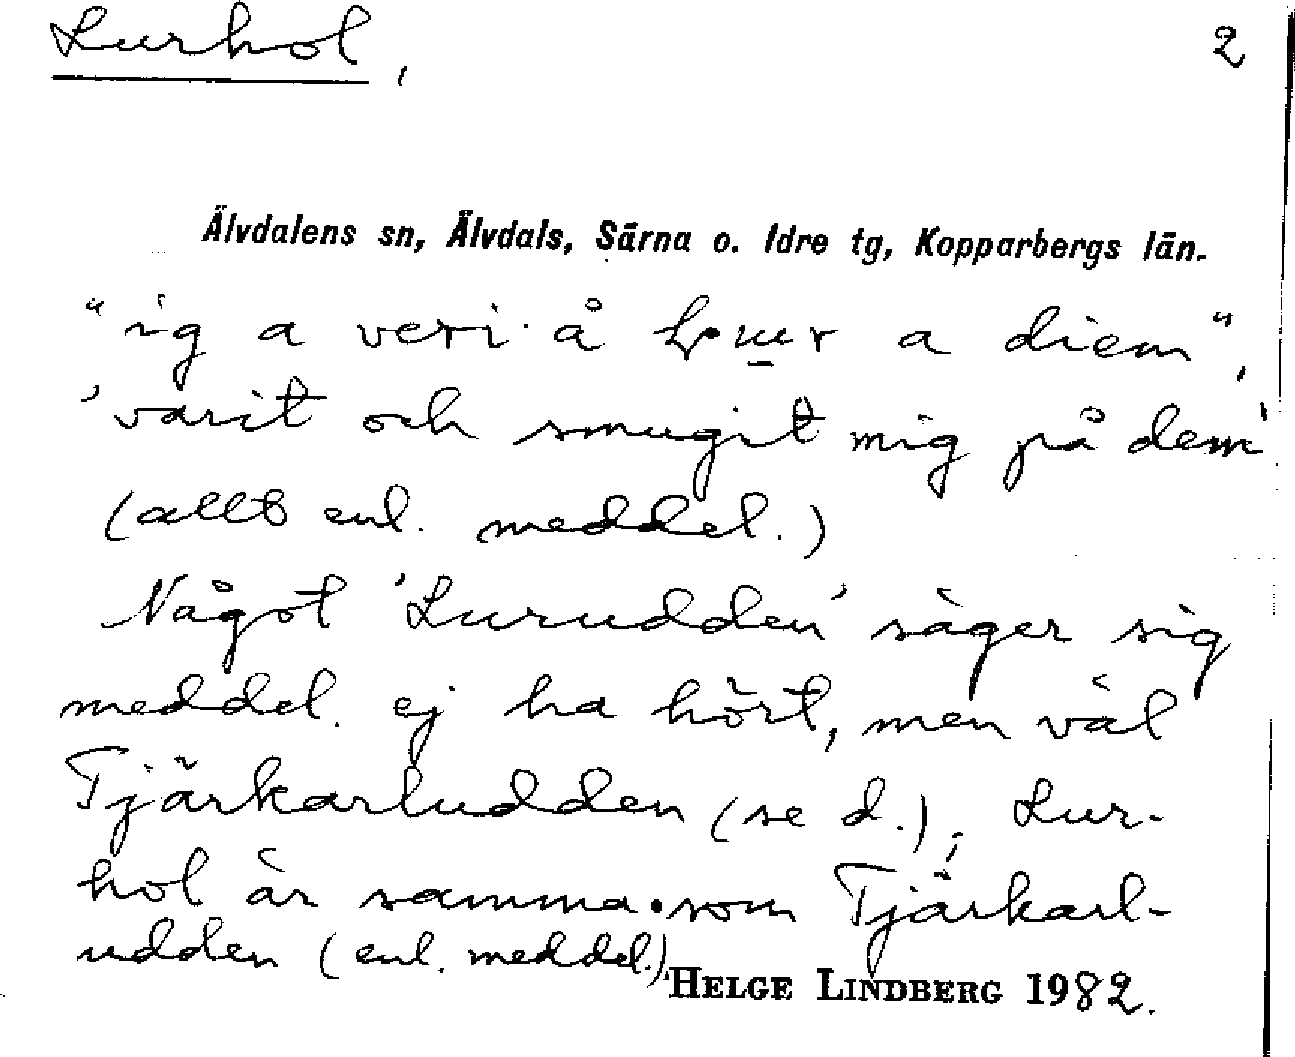 Lurhol,
2
Älvdalens sn, Älvdals, Särna o. Idre tg, Kopparbergs län.
"ig a veri å a diem",
'varit och smugit mig på dem'
(allt enl. meddel.)
Något 'Lurudden' säger sig
meddel. ej ha hört, men väl
Tjärkarludden (se d.); Lur-
hol är samma som Tjärkarl-
udden (enl. meddel.).
HELGE LINDBERG 1982.